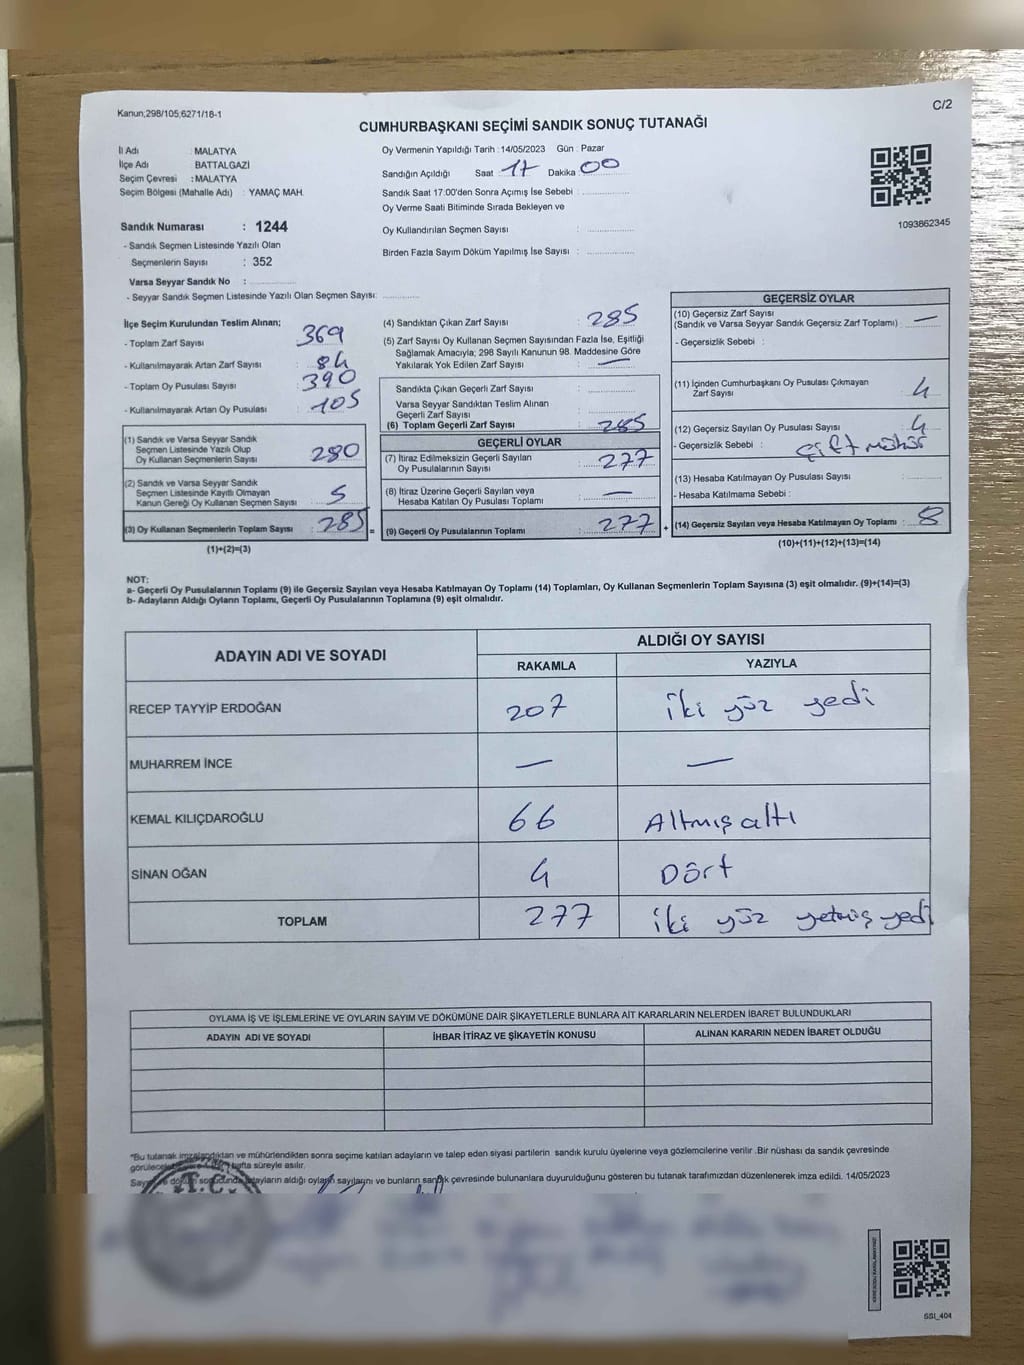 Kanun;298/105;6271/18-1
C/2
CUMHURBAŞKANI SEÇİMİ SANDIK SONUÇ TUTANAĞI
İl Adı : MALATYA
İlçe Adı : BATTALGAZİ
Seçim Çevresi : MALATYA
Seçim Bölgesi (Mahalle Adı) : YAMAÇ MAH.
Sandık Numarası : 1244
- Sandık Seçmen Listesinde Yazılı Olan
Seçmenlerin Sayısı : 352
Varsa Seyyar Sandık No :
- Seyyar Sandık Seçmen Listesinde Yazılı Olan Seçmen Sayısı:
Oy Vermenin Yapıldığı Tarih : 14/05/2023 Gün : Pazar
Sandığın Açıldığı Saat 17 Dakika 00
Sandık Saat 17:00'den Sonra Açımış İse Sebebi :
Oy Verme Saati Bitiminde Sırada Bekleyen ve
Oy Kullandırılan Seçmen Sayısı :
Birden Fazla Sayım Döküm Yapılmış İse Sayısı :
1093862345
İlçe Seçim Kurulundan Teslim Alınan;
- Toplam Zarf Sayısı : 369
- Kullanılmayarak Artan Zarf Sayısı : 84
- Toplam Oy Pusulası Sayısı : 390
- Kullanılmayarak Artan Oy Pusulası : 105
(1) Sandık ve Varsa Seyyar Sandık
Seçmen Listesinde Yazılı Olup
Oy Kullanan Seçmenlerin Sayısı : 280
(2) Sandık ve Varsa Seyyar Sandık
Seçmen Listesinde Kayıtlı Olmayan
Kanun Gereği Oy Kullanan Seçmen Sayısı : 5
(3) Oy Kullanan Seçmenlerin Toplam Sayısı : 285 =
(1)+(2)=(3)
(4) Sandıktan Çıkan Zarf Sayısı : 285
(5) Zarf Sayısı Oy Kullanan Seçmen Sayısından Fazla İse, Eşitliği
Sağlamak Amacıyla; 298 Sayılı Kanunun 98. Maddesine Göre
Yakılarak Yok Edilen Zarf Sayısı : —
Sandıkta Çıkan Geçerli Zarf Sayısı :
Varsa Seyyar Sandıktan Teslim Alınan
Geçerli Zarf Sayısı :
(6) Toplam Geçerli Zarf Sayısı : 285
GEÇERLİ OYLAR
(7) İtiraz Edilmeksizin Geçerli Sayılan
Oy Pusulalarının Sayısı : 277
(8) İtiraz Üzerine Geçerli Sayılan veya
Hesaba Katılan Oy Pusulası Toplamı : —
(9) Geçerli Oy Pusulalarının Toplamı : 277 +
GEÇERSİZ OYLAR
(10) Geçersiz Zarf Sayısı
(Sandık ve Varsa Seyyar Sandık Geçersiz Zarf Toplamı) : —
- Geçersizlik Sebebi :
(11) İçinden Cumhurbaşkanı Oy Pusulası Çıkmayan
Zarf Sayısı : 4
(12) Geçersiz Sayılan Oy Pusulası Sayısı : 4
- Geçersizlik Sebebi : Çift mühür
(13) Hesaba Katılmayan Oy Pusulası Sayısı :
- Hesaba Katılmama Sebebi :
(14) Geçersiz Sayılan veya Hesaba Katılmayan Oy Toplamı : 8
(10)+(11)+(12)+(13)=(14)
NOT:
a- Geçerli Oy Pusulalarının Toplamı (9) ile Geçersiz Sayılan veya Hesaba Katılmayan Oy Toplamı (14) Toplamları, Oy Kullanan Seçmenlerin Toplam Sayısına (3) eşit olmalıdır. (9)+(14)=(3)
b- Adayların Aldığı Oyların Toplamı, Geçerli Oy Pusulalarının Toplamına (9) eşit olmalıdır.
ADAYIN ADI VE SOYADI
ALDIĞI OY SAYISI
RAKAMLA YAZIYLA
RECEP TAYYİP ERDOĞAN 207 iki yüz yedi
MUHARREM İNCE — —
KEMAL KILIÇDAROĞLU 66 Altmış altı
SİNAN OĞAN 4 Dört
TOPLAM 277 iki yüz yetmiş yedi
OYLAMA İŞ VE İŞLEMLERİNE VE OYLARIN SAYIM VE DÖKÜMÜNE DAİR ŞİKAYETLERLE BUNLARA AİT KARARLARIN NELERDEN İBARET BULUNDUKLARI
ADAYIN ADI VE SOYADI İHBAR İTİRAZ VE ŞİKAYETİN KONUSU ALINAN KARARIN NEDEN İBARET OLDUĞU
"Bu tutanak imzalandıktan ve mühürlendikten sonra seçime katılan adayların ve talep eden siyasi partilerin sandık kurulu üyelerine veya gözlemcilerine verilir .Bir nüshası da sandık çevresinde
hafta süreyle asılır.
adayların aldığı oyların sayılarını ve bunların sandık çevresinde bulunanlara duyurulduğunu gösteren bu tutanak tarafımızdan düzenlenerek imza edildi. 14/05/2023
T.C.
SSI_404